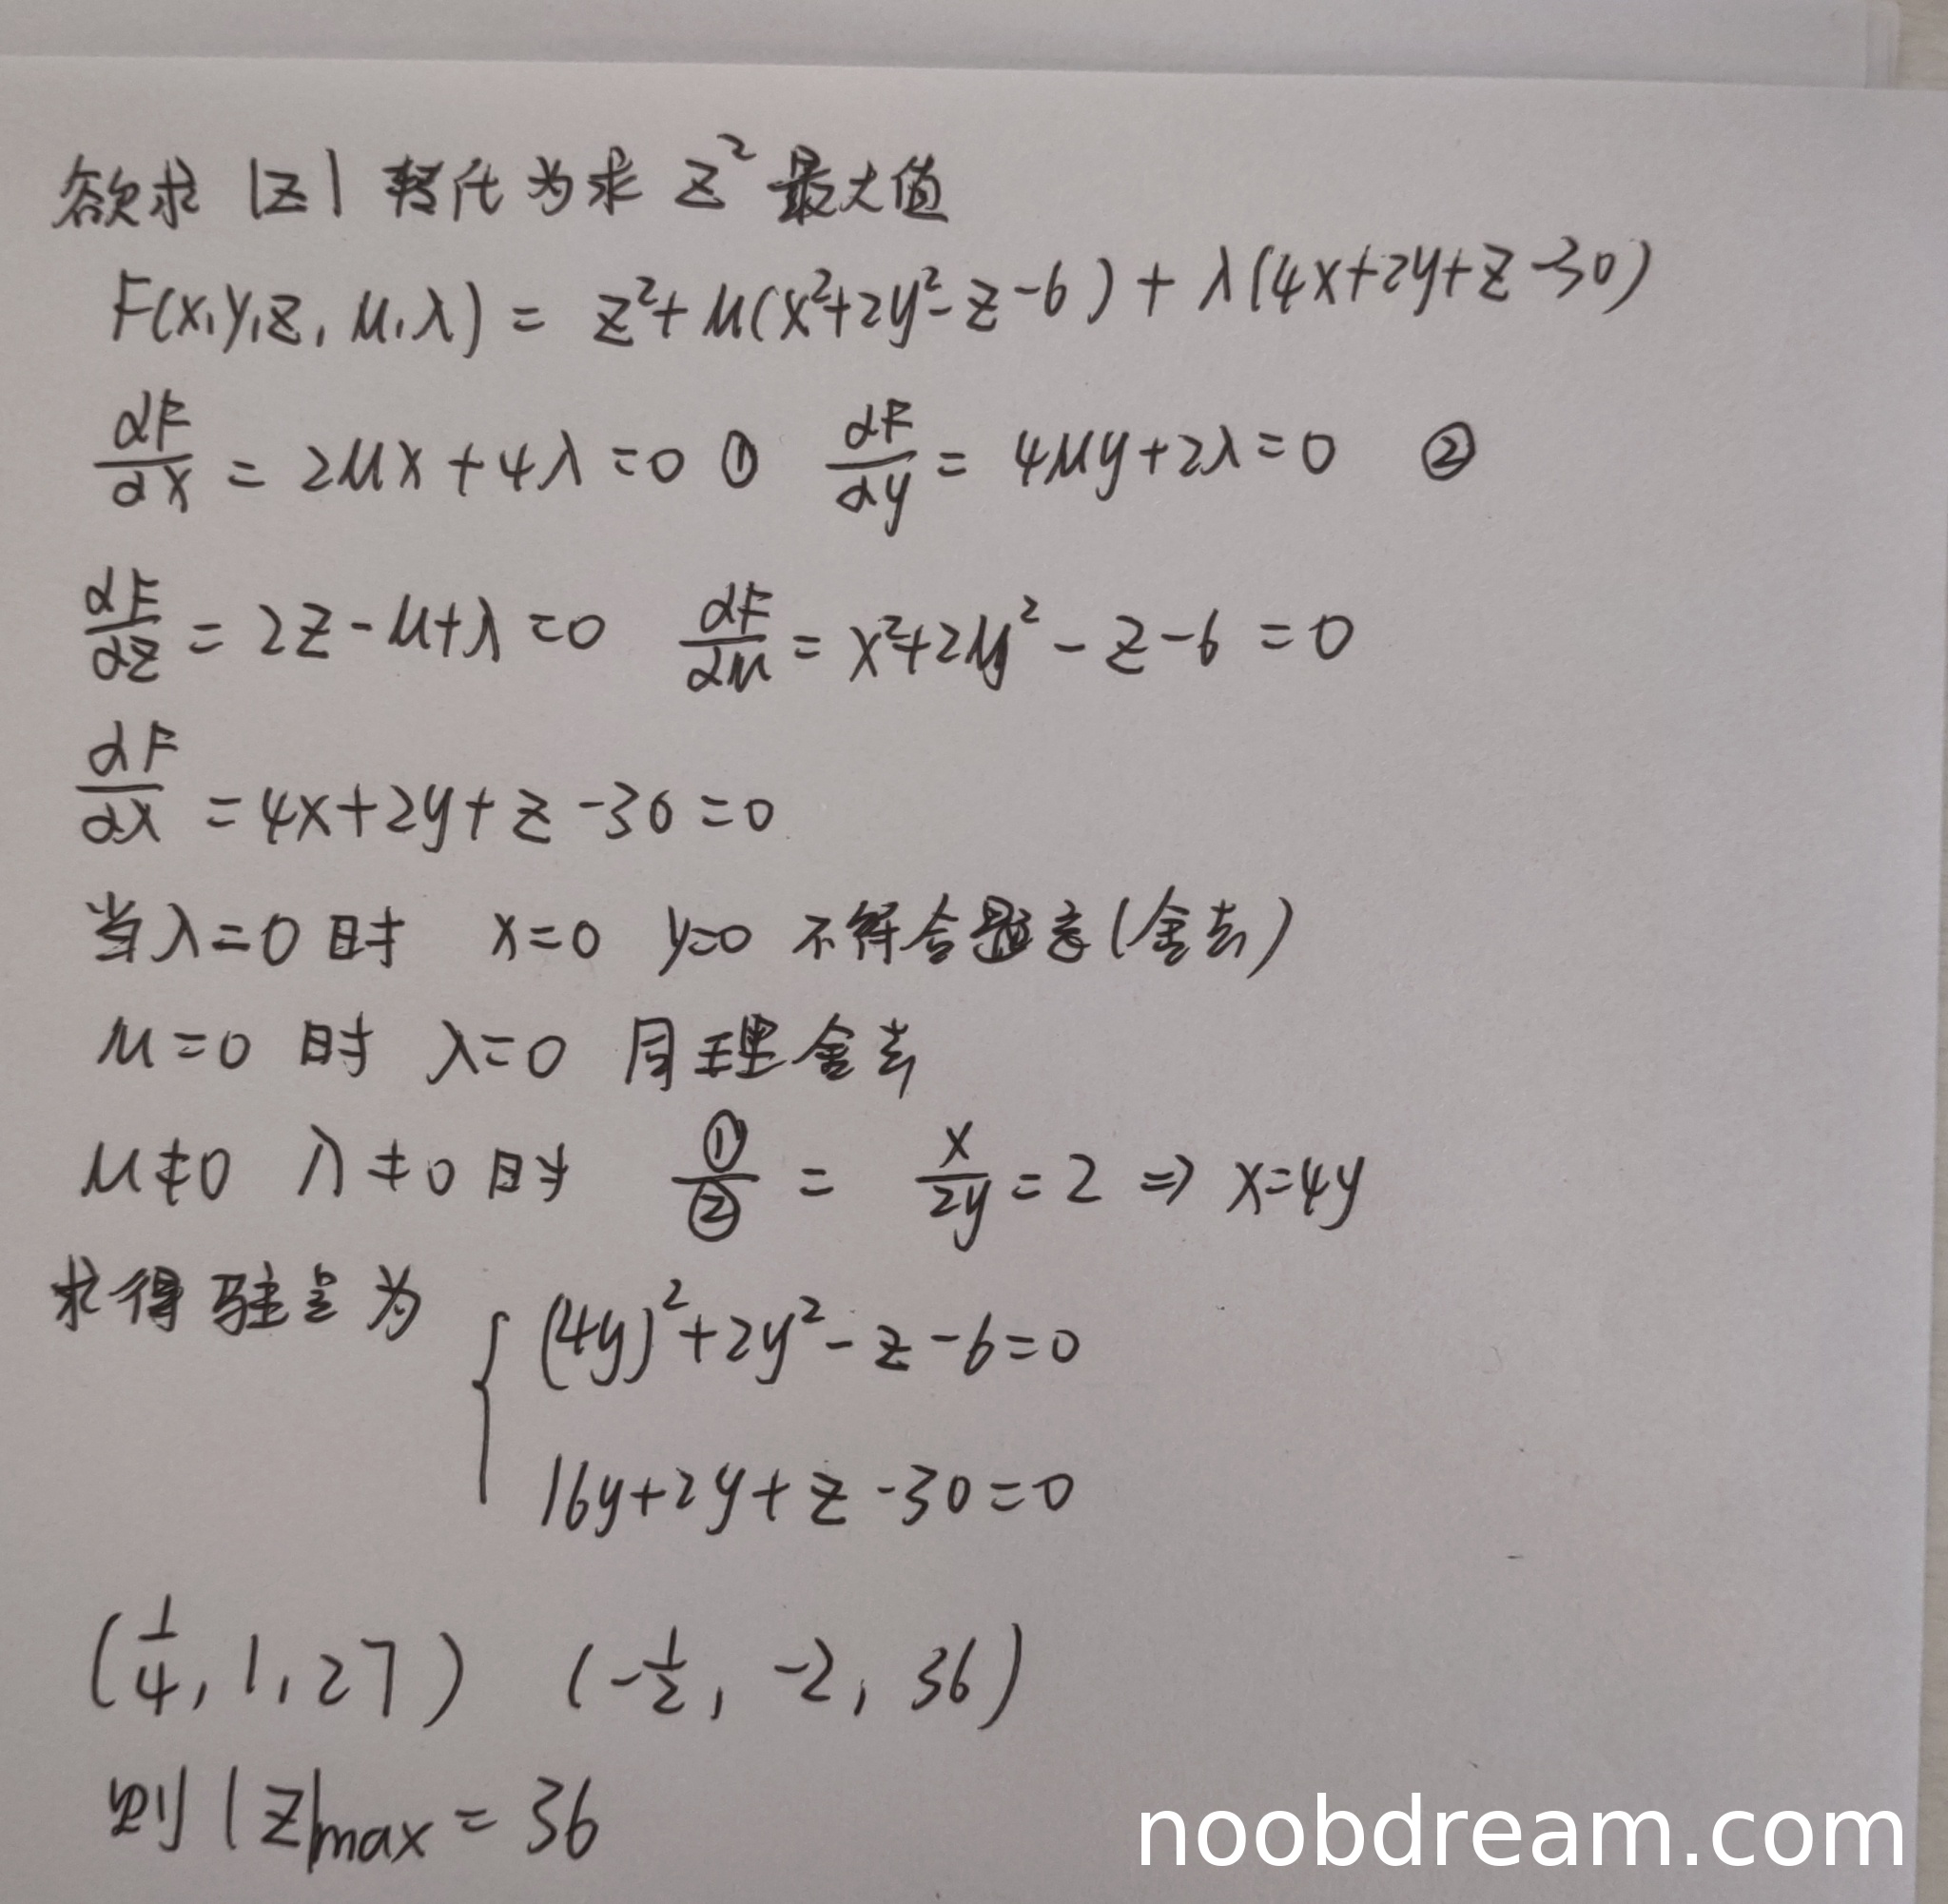 欲求 |z| 转化为求 z² 最大值
F(x,y,z,μ,λ) = z²+μ(x²+2y²-z-6)+λ(4x+2y+z-30)
dF/dx = 2μx+4λ=0 ① dF/dy = 4μy+2λ=0 ②
dF/dz = 2z-μ+λ=0 dF/dμ = x²+2y²-z-6=0
dF/dλ = 4x+2y+z-30=0
当λ=0时 x=0 y=0 不符合题意(舍去)
μ=0 时 λ=0 同理舍去
μ≠0 λ≠0时 ①/② = x/2y = 2 ⇒ x=4y
求得驻点为 { (4y)²+2y²-z-6=0
16y+2y+z-30=0
(1/4, 1, 27) (-1/2, -2, 36)
则|z|max = 36
noobdream.com